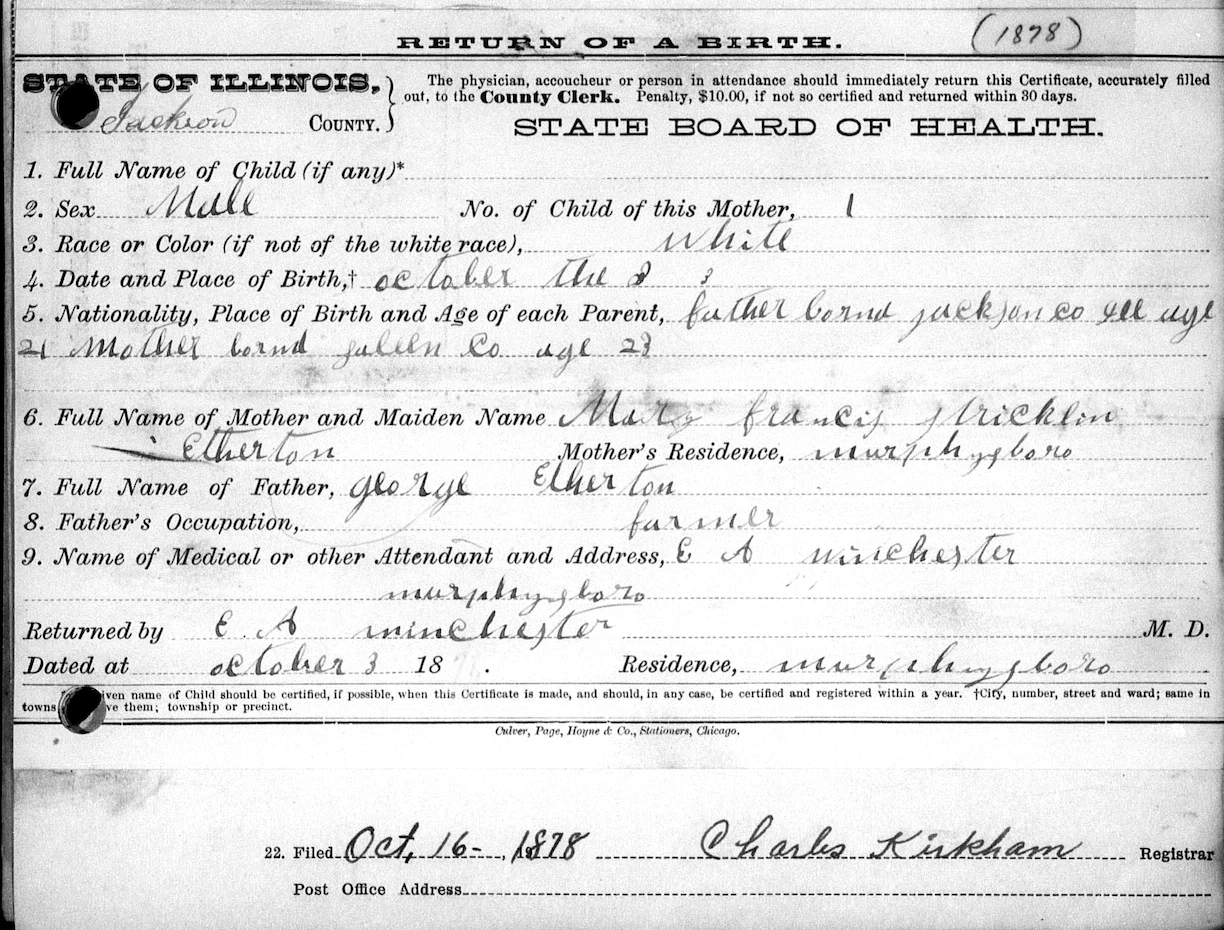 RETURN OF A BIRTH.
(1878)
STATE OF ILLINOIS,
Jackson COUNTY.
The physician, accoucheur or person in attendance should immediately return this Certificate, accurately filled
out, to the County Clerk. Penalty, $10.00, if not so certified and returned within 30 days.
STATE BOARD OF HEALTH.
1. Full Name of Child (if any)*
2. Sex Male No. of Child of this Mother, 1
3. Race or Color (if not of the white race), White
4. Date and Place of Birth,† october the 3
5. Nationality, Place of Birth and Age of each Parent, father bornd jackson co ill age
21 Mother bornd co age 23
6. Full Name of Mother and Maiden Name Mary francis stricklin
Etherton Mother's Residence, murphysboro
7. Full Name of Father, george Etherton
8. Father's Occupation, farmer
9. Name of Medical or other Attendant and Address, E A winchester
murphysboro
Returned by E. A winchester M. D.
Dated at october 3 18 . Residence, murphysboro
iven name of Child should be certified, if possible, when this Certificate is made, and should, in any case, be certified and registered within a year. †City, number, street and ward; same in
towns ve them; township or precinct.
Culver, Page, Hoyne & Co., Stationers, Chicago.
22. Filed Oct, 16-, 1878 Charles Kirkham Registrar
Post Office Address